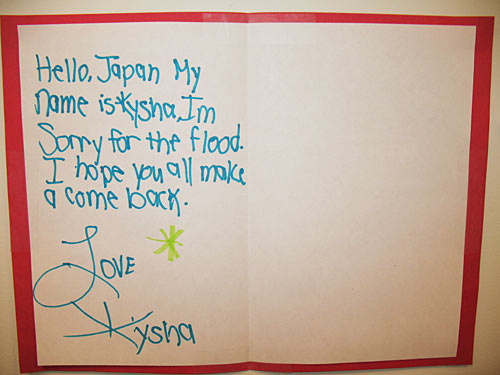 Hello, Japan My
name is Kysha, Im
Sorry for the flood.
I hope you all make
a come back.
Love
Kysha